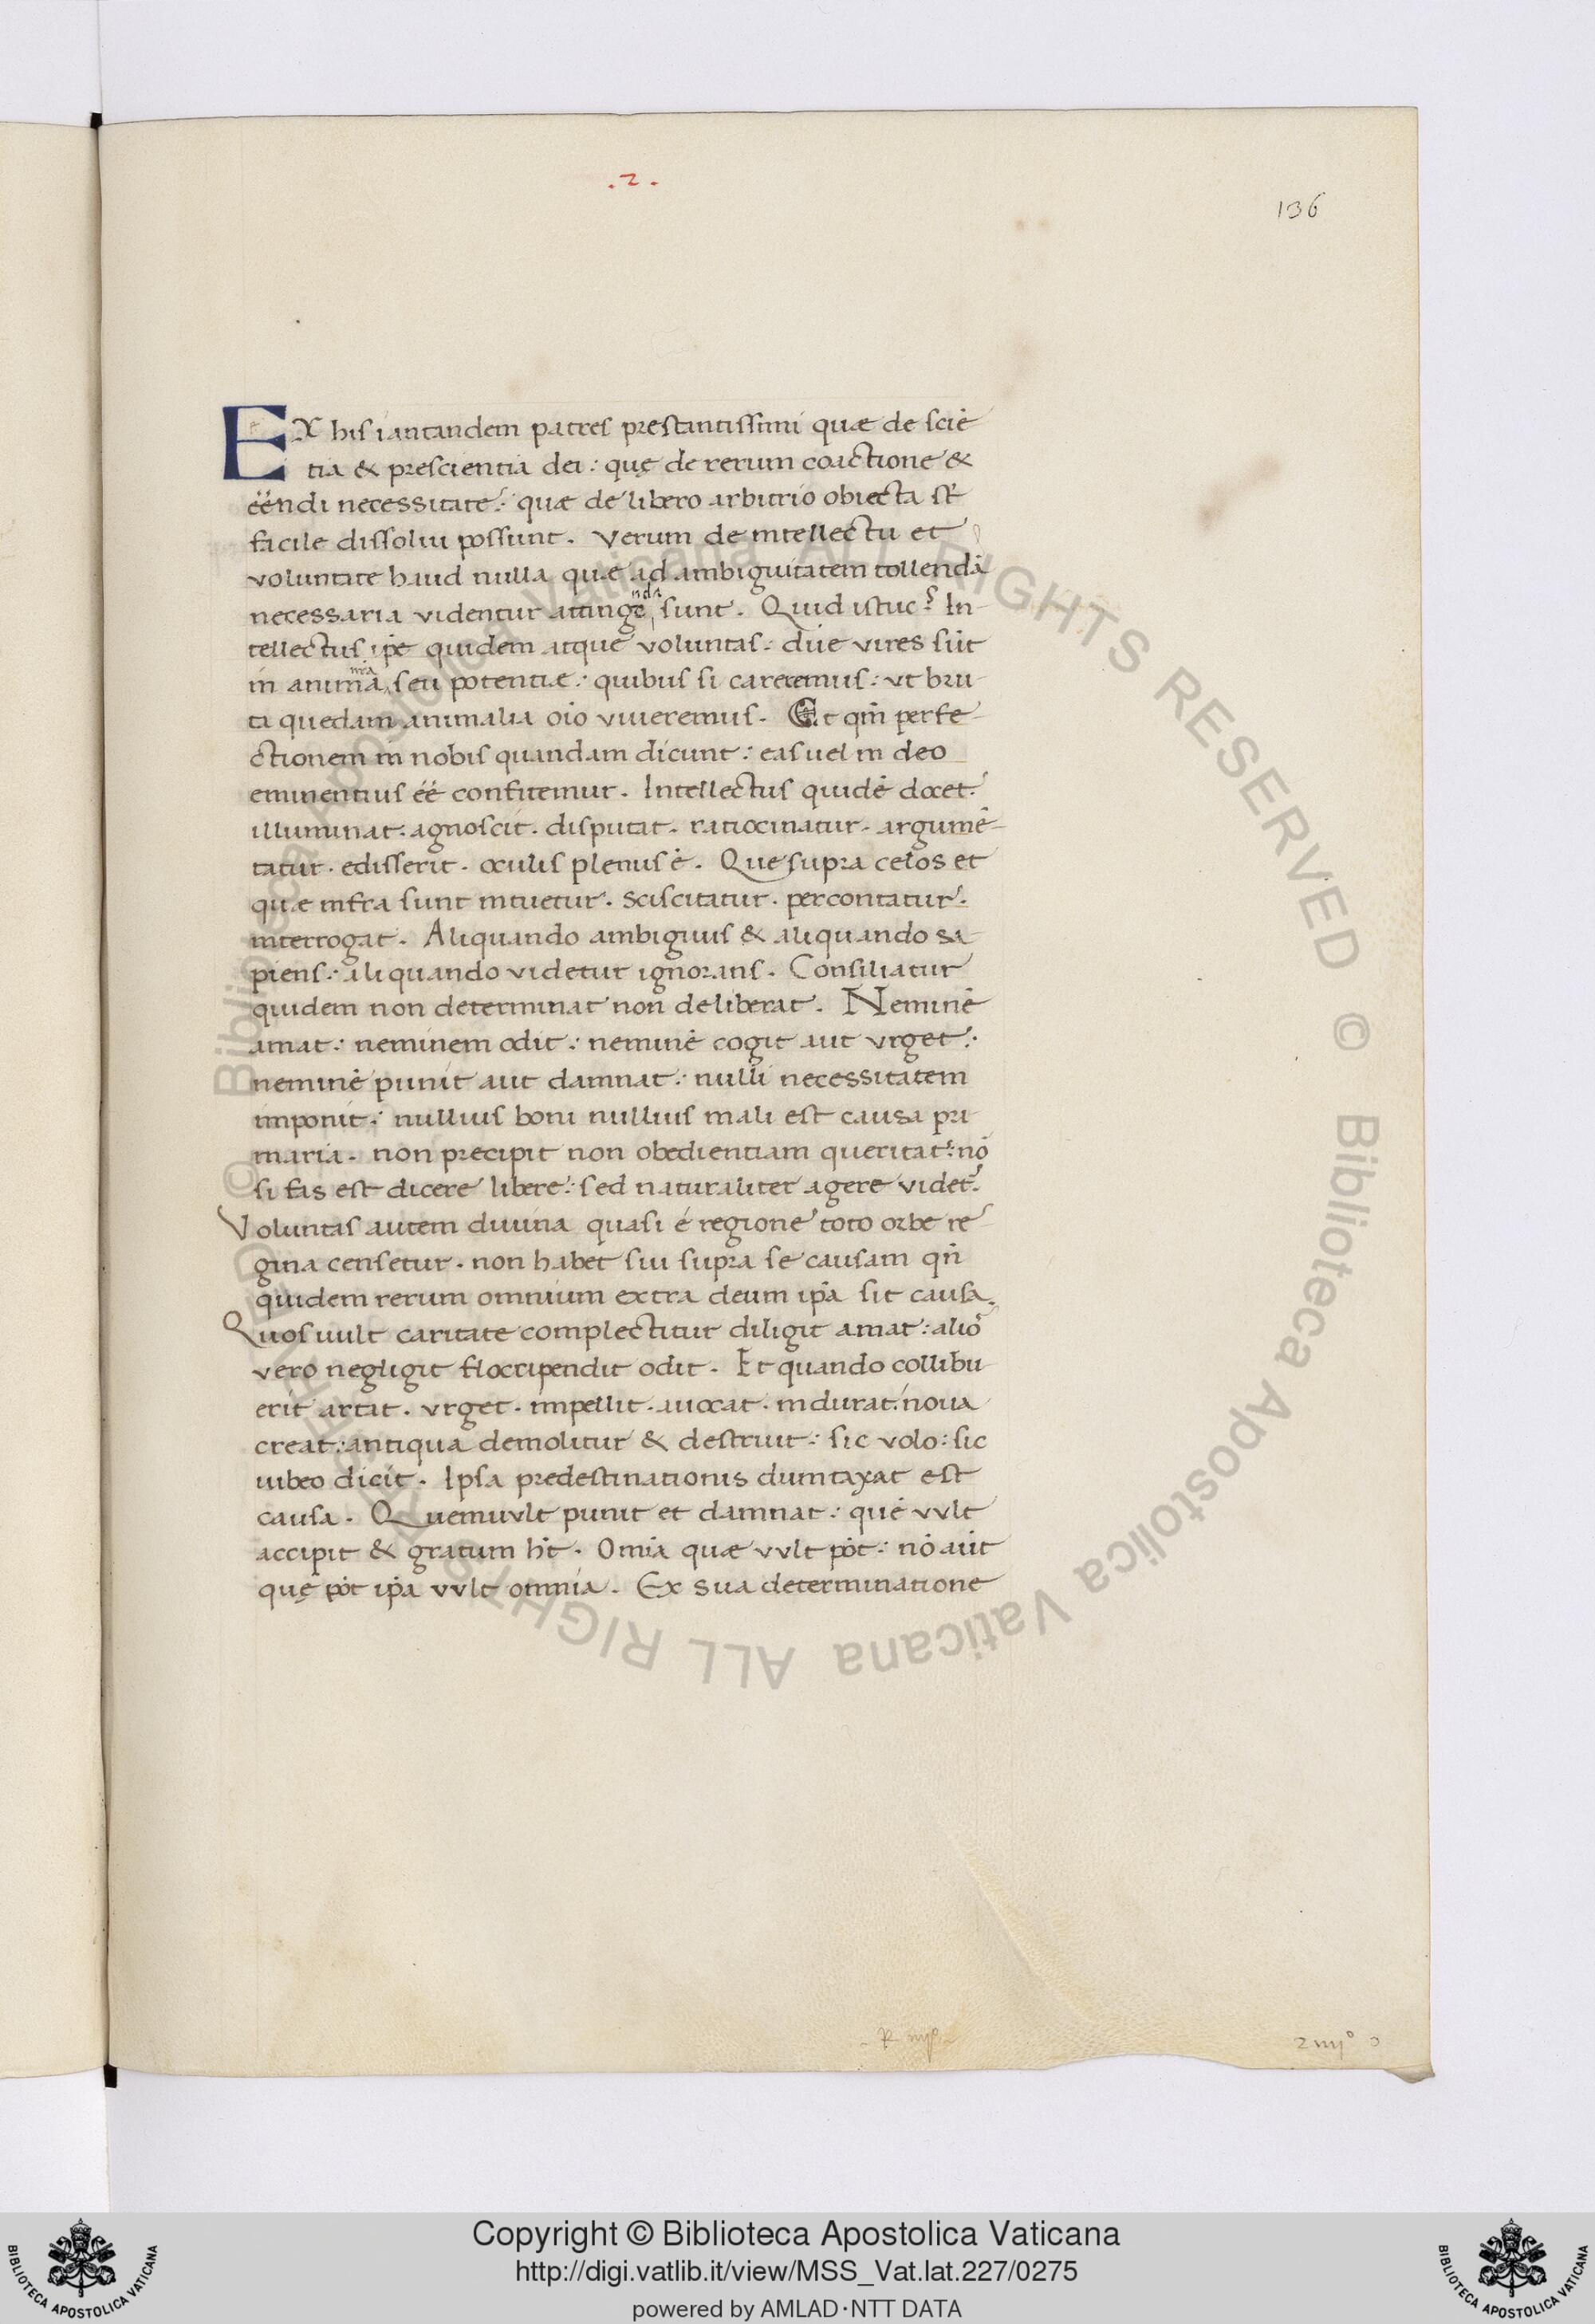 .2.
136
EX his iantandem patres prestantissimi quæ de sciē
tia & prescientia dei: quę de rerum coactione &
ēēndi necessitate: quæ de libero arbitrio obiecta st̄
facile dissolui possunt. Verum de intellectu et
voluntate haud nulla quæ ad ambiguitatem tollendā
necessaria videntur attingenda sunt. Quid istuc? In-
tellectus ipē quidem atque voluntas: due vires sūt
in anima nr̄a seu potentiæ: quibus si careremus: vt bru-
ta quedam animalia oīo viueremus. Et qm̄ perfe-
ctionem in nobis quandam dicunt: eas uel in deo
eminentius ēē confitemur. Intellectus quidē docet.
illuminat. agnoscit. disputat. ratiocinatur. argumē-
tatur. edisserit. oculis plenus ē. Que supra celos et
quæ infra sunt intuetur. sciscitatur. percontatur.
interrogat. Aliquando ambiguus & aliquando sa-
piens: aliquando videtur ignorans. Consiliatur
quidem non determinat non deliberat. Neminē
amat: neminem odit: neminē cogit aut vrget:
neminē punit aut damnat: nulli necessitatem
imponit: nullius boni nullius mali est causa pri-
maria. non precipit non obedientiam queritat: nō
si fas est dicere libere: sed naturaliter agere videt̄.
Voluntas autem diuina quasi é regione toto orbe re-
gina censetur. non habet sui supra se causam qn̄
quidem rerum omnium extra deum ip̄a sit causa.
Quos uult caritate complectitur diligit amat: alios
vero negligit floccipendit odit. Et quando collibu-
erit artat. vrget. impellit. auocat. indurat. noua
creat: antiqua demolitur & destruit: sic volo: sic
iubeo dicit. Ipsa predestinationis dumtaxat est
causa. Quemuvlt punit et damnat: quē vvlt
accipit & gratum ht̄. Omīa quæ vvlt pōt: nō aūt
quę pōt ip̄a vvlt omnia. Ex sua determinatione
Copyright © Biblioteca Apostolica Vaticana
http://digi.vatlib.it/view/MSS_Vat.lat.227/0275
powered by AMLAD·NTT DATA